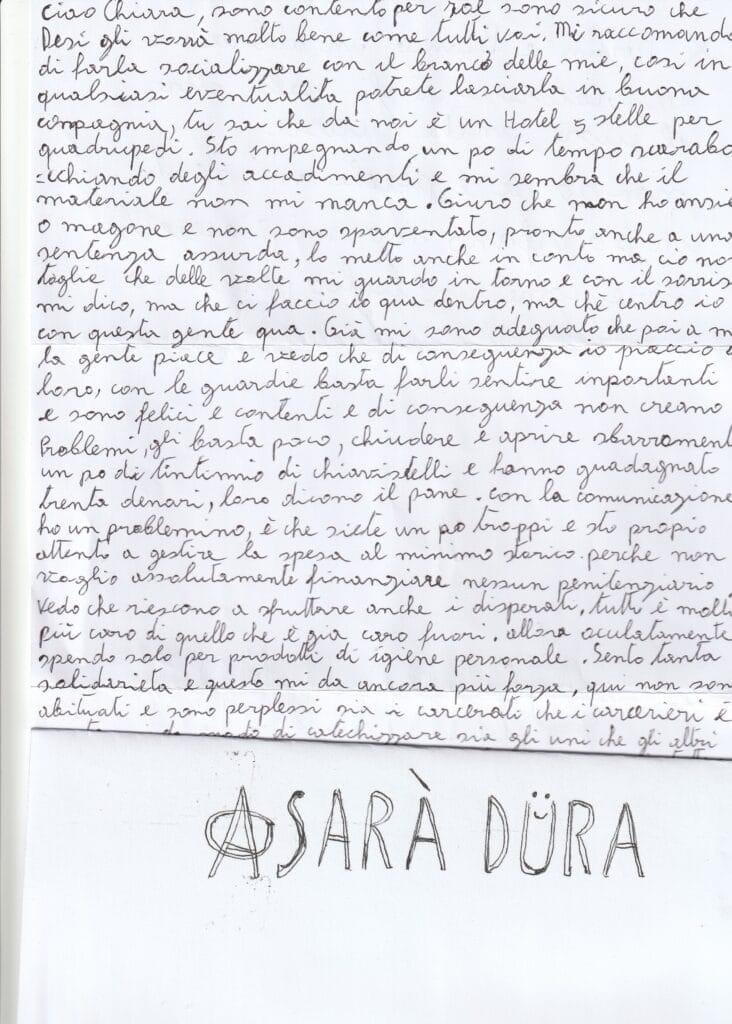 Ciao Chiara, sono contento per sal sono sicuro che
Desi gli vorrà molto bene come tutti voi. Mi raccomando
di farla socializzare con il branco delle mie, così in
qualsiasi eventualita potrete lasciarla in buona
compagnia, tu sai che da noi è un Hotel 5 stelle per
quadrupedi. Sto impegnando un po di tempo scarabo
=cchiando degli accadimenti e mi sembra che il
materiale non mi manca. Giuro che non ho ansie
o magone e non sono spaventato, pronto anche a una
sentenza assurda, lo metto anche in conto ma ciò no
toglie che delle volte mi guardo in torno e con il sorris
mi dico, ma che ci faccio io qua dentro, ma chè centro io
con questa gente qua. Già mi sono adeguato che poi a m
la gente piace e vedo che di conseguenza io piaccio a
loro, con le guardie basta farli sentire inportanti
e sono felici e contenti e di conseguenza non creano
Problemi, gli basta poco, chiudere e aprire sbarrament
un po di tintinnio di chiavistelli e hanno guadagnato
trenta denari, loro dicono il pane. con la comunicazione
ho un problemino, è che siete un po troppi e sto propio
attento a gestire la spesa al minimo storico. perche non
voglio assolutamente finanziare nessun penitenziario.
Vedo che riescono a sfruttare anche i disperati, tutti è molt
più caro di quello che è gia caro fuori. allora oculatamente
spendo solo per prodotti di igiene personale. Sento tanta
solidarieta e questo mi da ancora più forza, qui non son
abituati e sono perplessi sia i carcerati che i carcerieri è
modo di catechizzare sia gli uni che gli altri
A SARÀ DÜRA